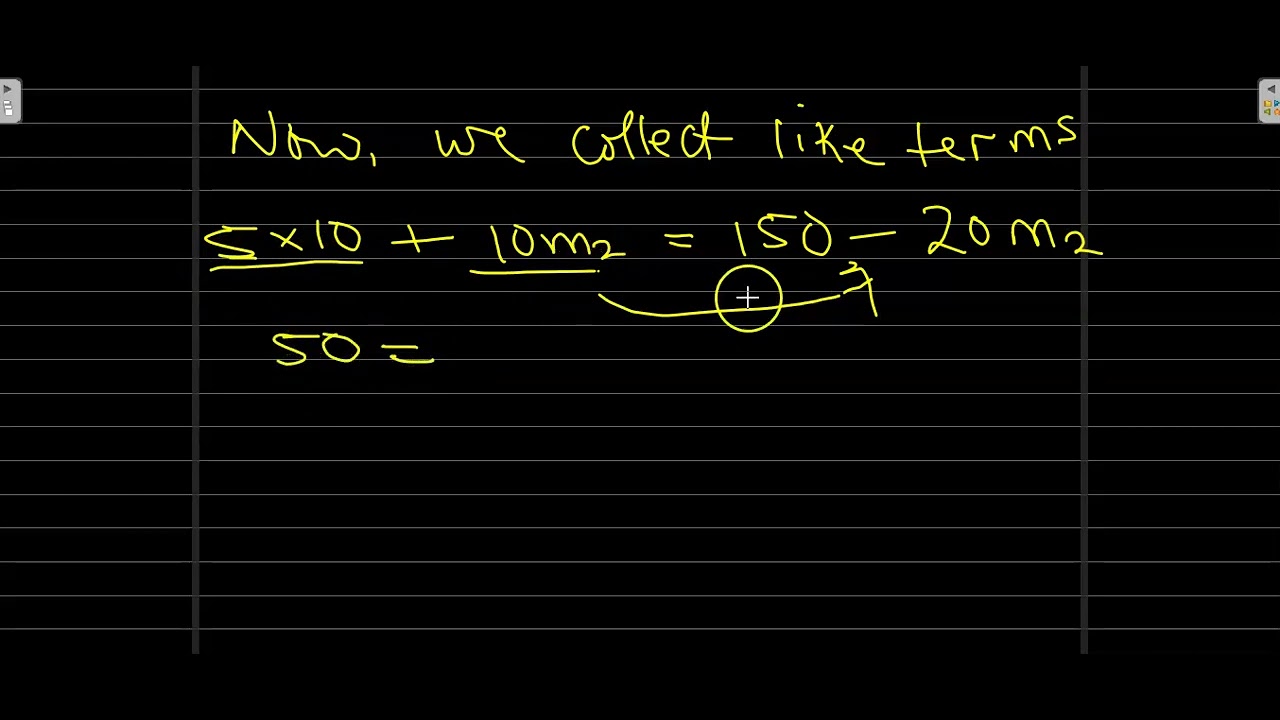 Now, we collect like terms
5×10 + 10m₂ = 150 - 20m₂
50 =